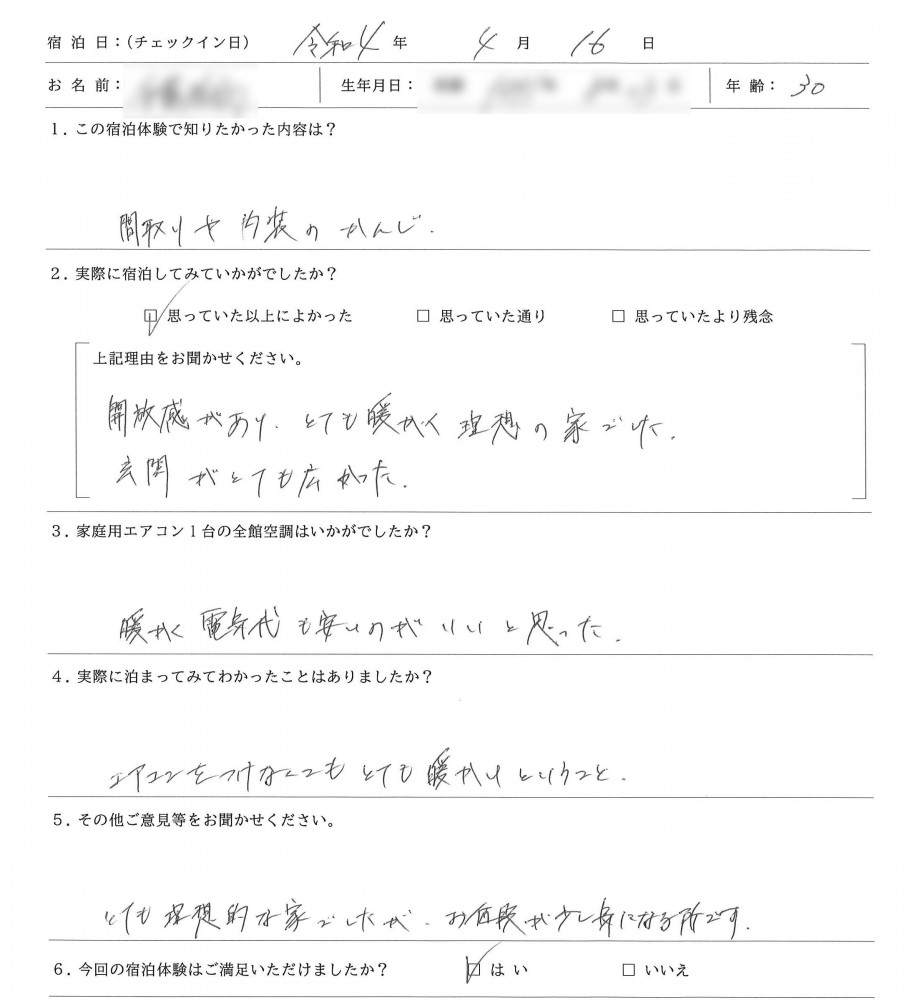 宿 泊 日：(チェックイン日) 令和4 年 4 月 16 日
お 名 前： 生年月日： 年 齢： 30
1. この宿泊体験で知りたかった内容は？
間取りや内装のかんじ.
2. 実際に宿泊してみていかがでしたか？
☑ 思っていた以上によかった □ 思っていた通り □ 思っていたより残念
上記理由をお聞かせください。
開放感があり、とても暖かく理想の家でした.
玄関がとても広かった.
3. 家庭用エアコン1台の全館空調はいかがでしたか？
暖かく電気代も安いのがいいと思った.
4. 実際に泊まってみてわかったことはありましたか？
エアコンをつけなくてもとても暖かいということ.
5. その他ご意見等をお聞かせください。
とても理想的な家でしたが、お値段が少し気になる所です.
6. 今回の宿泊体験はご満足いただけましたか？ ☑ はい □ いいえ